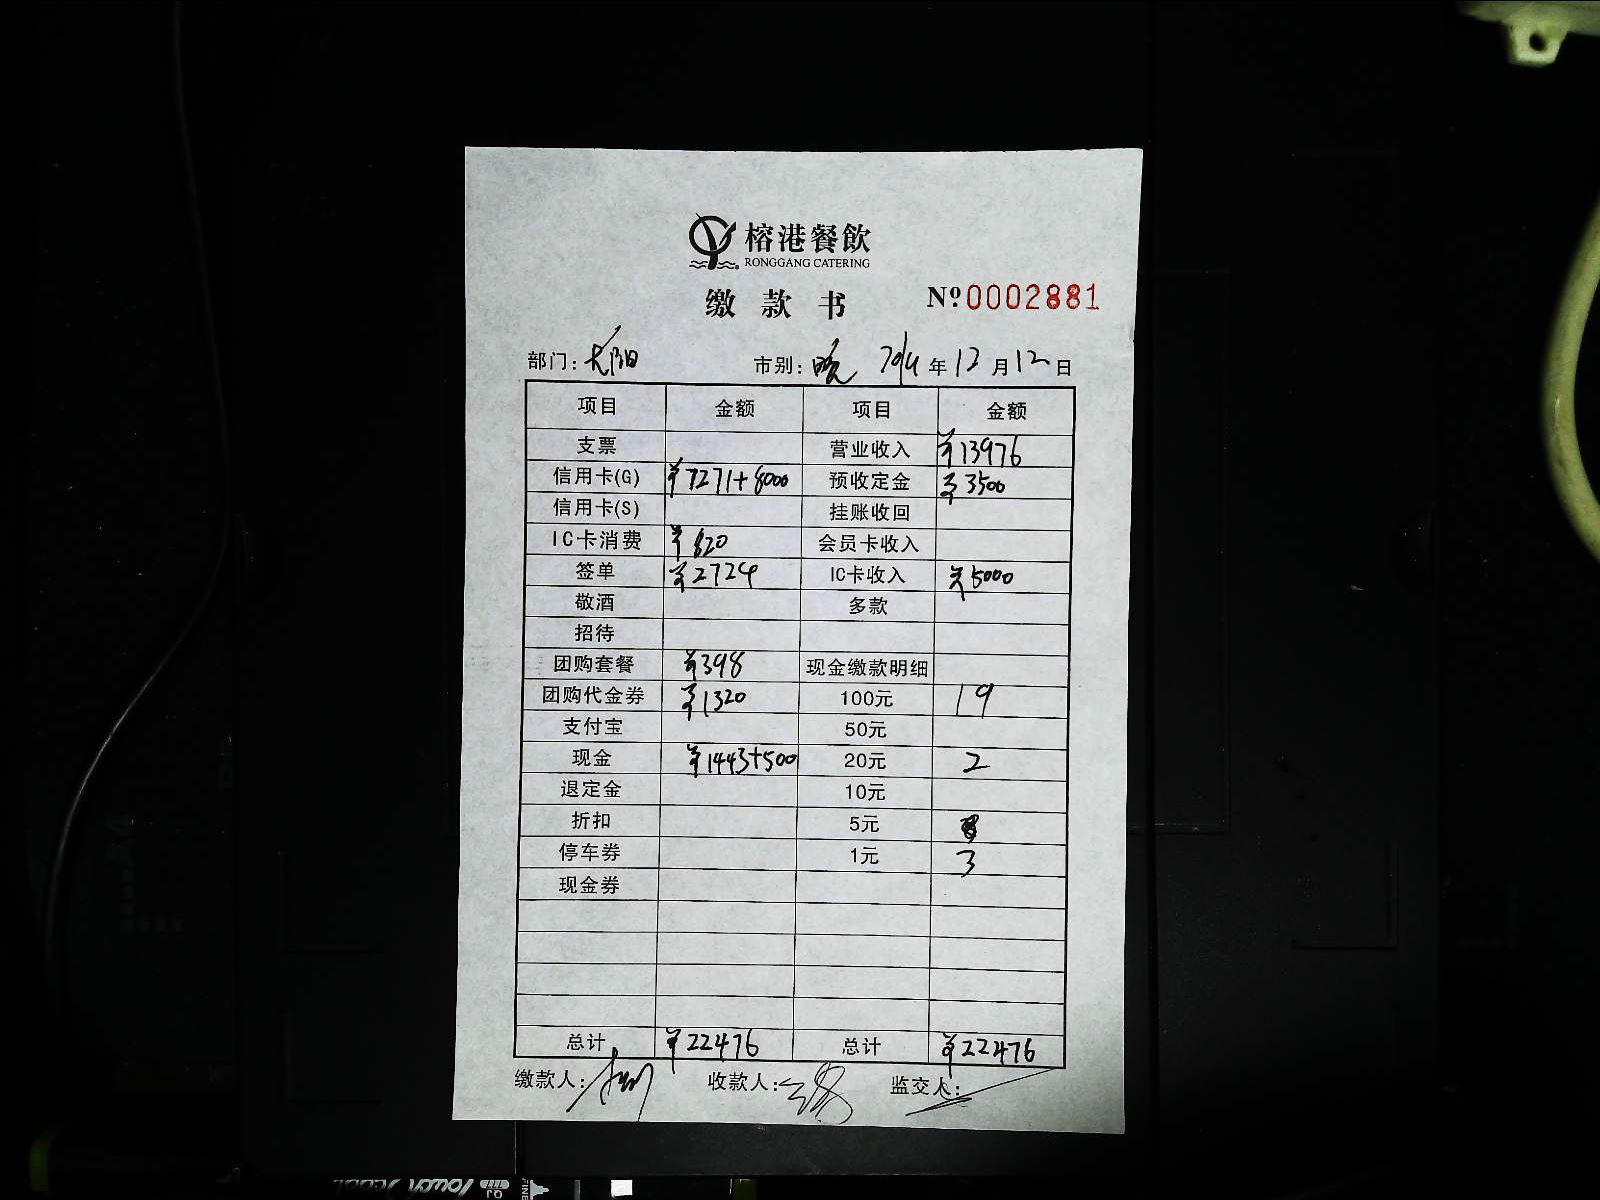 榕港餐飲
RONGGANG CATERING
缴款书 Nº0002881
部门: 太阳 市别: 晚 2014年12月12日
项目 金额 项目 金额
支票 营业收入 ¥13976
信用卡(G) ¥7271+8000 预收定金 ¥3500
信用卡(S) 挂账收回
IC卡消费 ¥820 会员卡收入
签单 ¥2724 IC卡收入 ¥5000
敬酒 多款
招待
团购套餐 ¥398 现金缴款明细
团购代金券 ¥1320 100元 19
支付宝 50元
现金 ¥1443+500 20元 2
退定金 10元
折扣 5元
停车券 1元 3
现金券
总计 ¥22476 总计 ¥22476
缴款人: 收款人: 监交人: